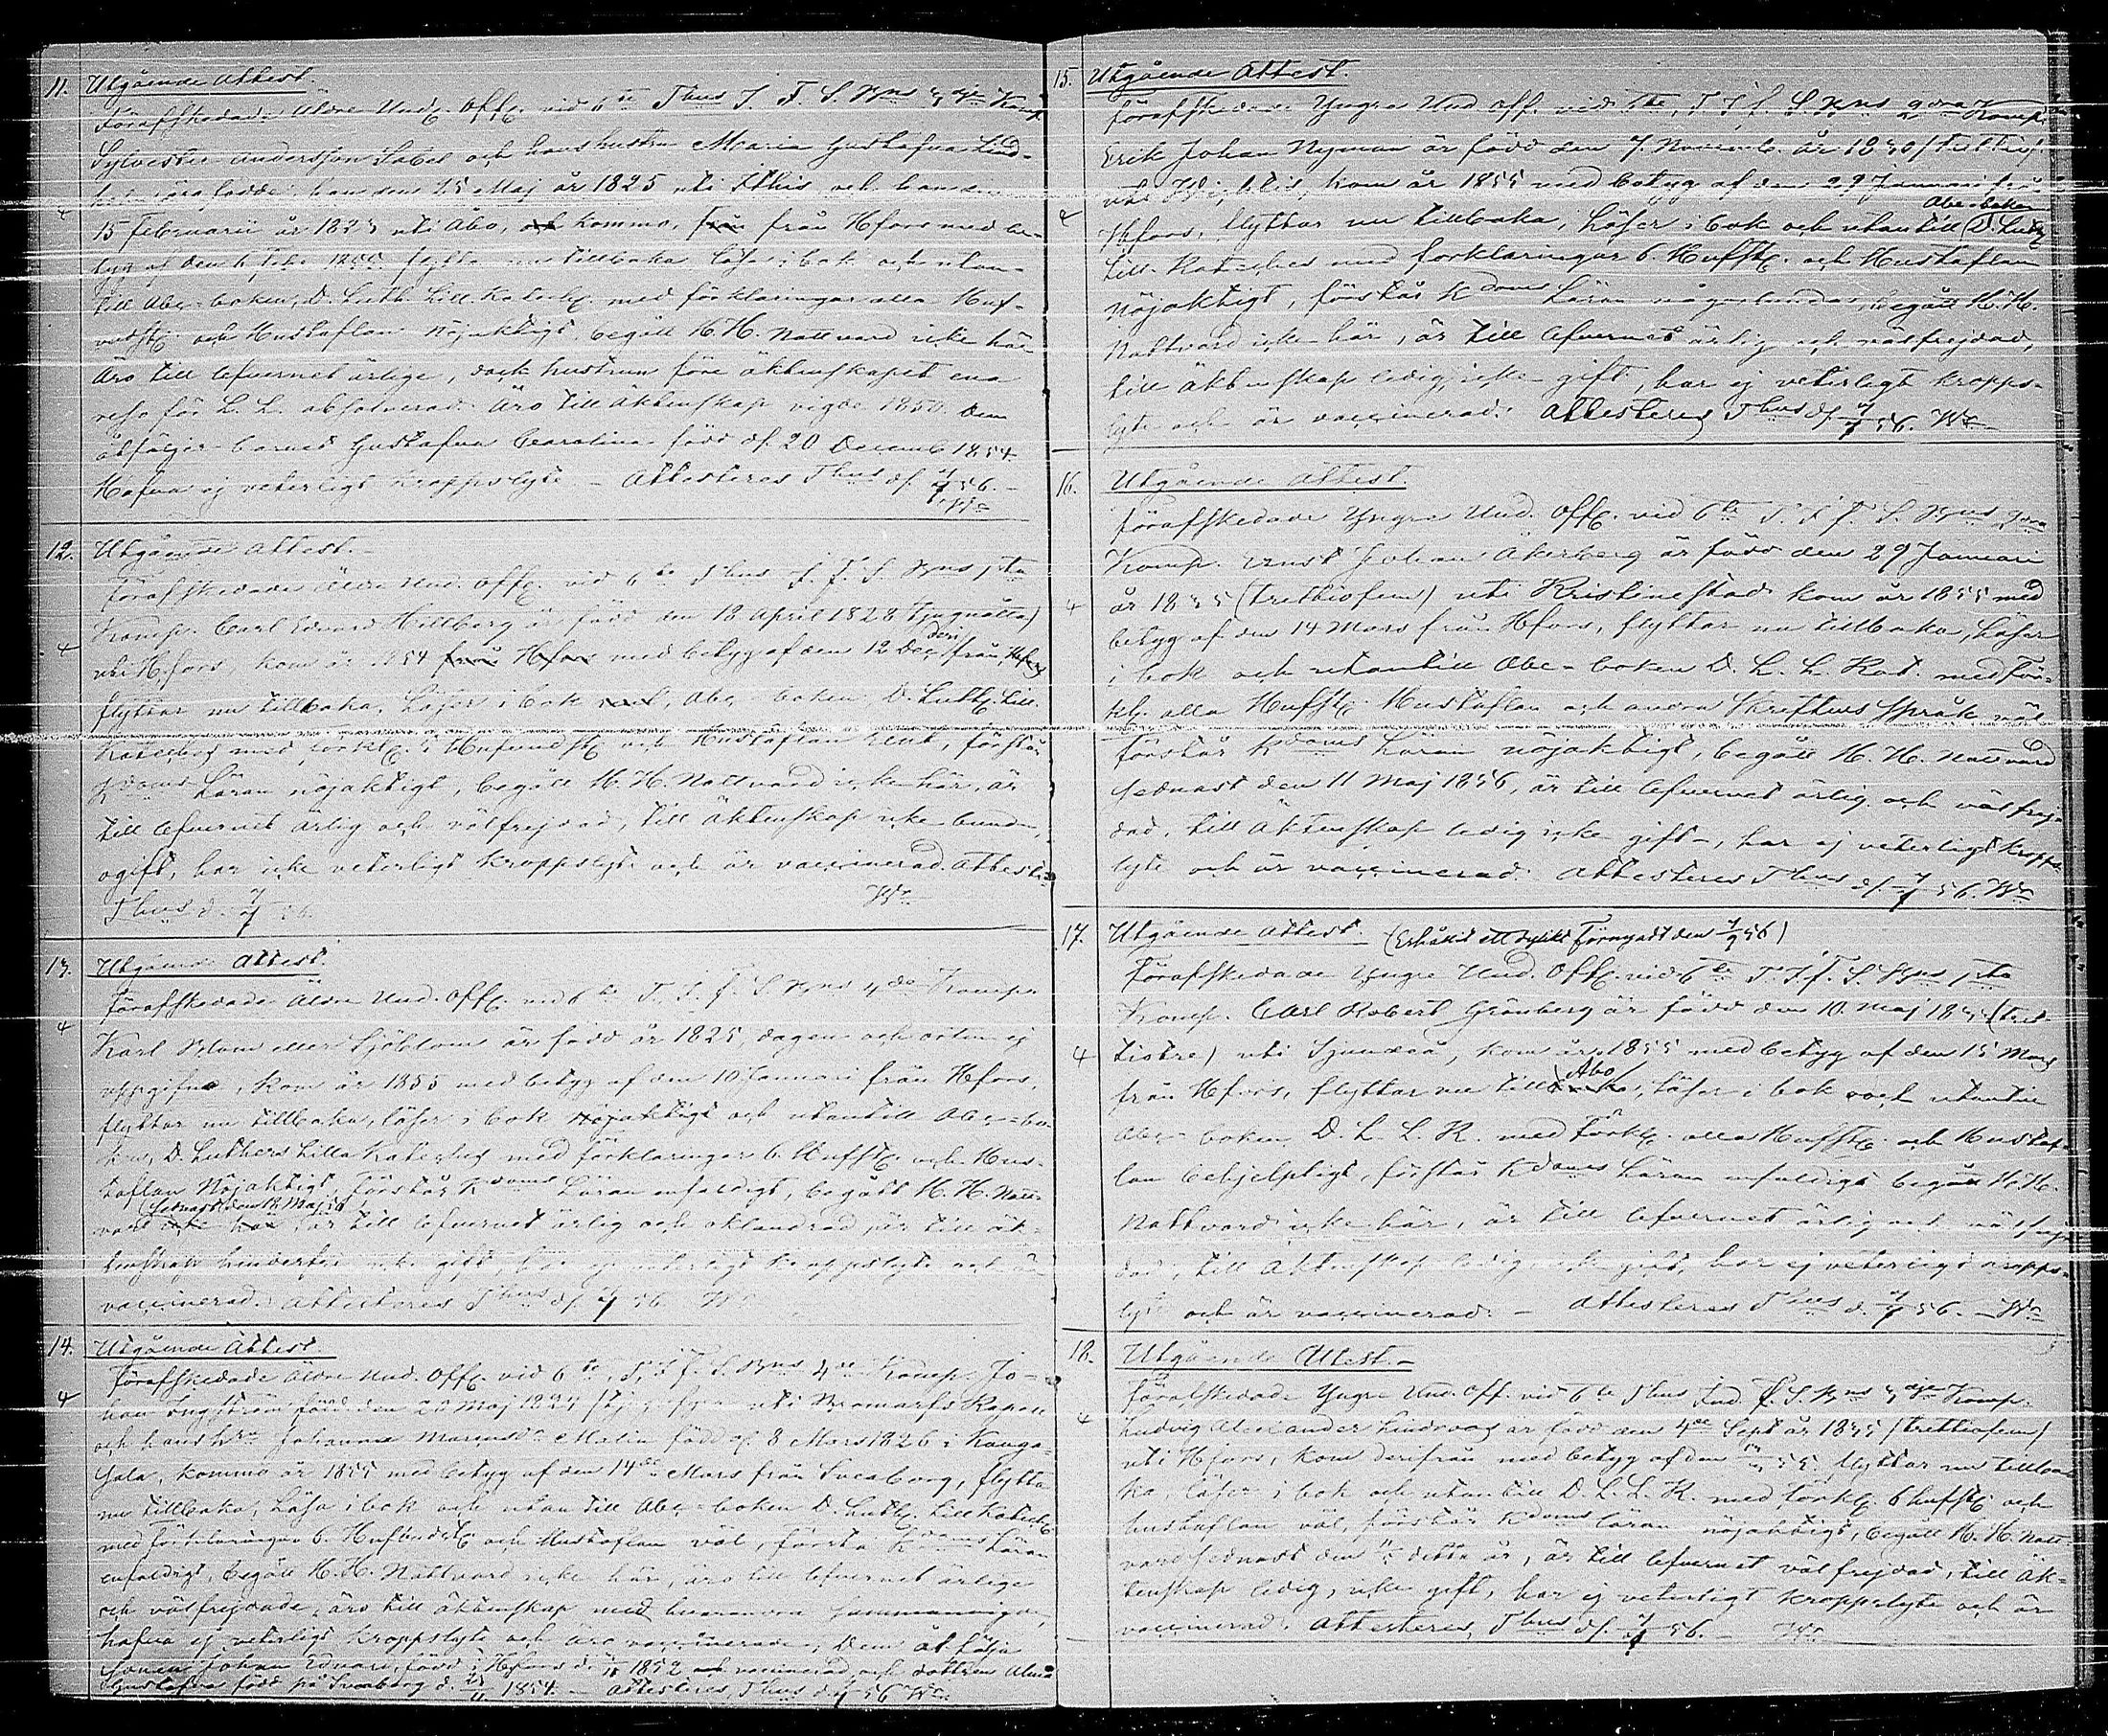 11. Utgående Attest.
Förafskedade Äldre Und. Off. vid 6te Thus I. F. S. Bns 3dje Komp
Sylvester Andersson Sabel och hans hustru Maria Gustafva Lind-
äro födde: han den 25 Maj år 1825 uti Ithis och hon den
4 15 Februarii år 1823 uti Åbo, och kommo, från från Hfors med be-
tyg af den 6 Febr 1855 flytta nu tillbaka läsa i bok och utan-
till Abc-boken, D. Luth. Lill. Kateches med förklaringar alla Huf-
vudst. och Hustaflan Nöjaktigt, begått H. H. Nattvard icke här
Äro till lefvernet ärlige, dock hustrun före äktenskapet ena
resa för L. L. absolverad. Äro till Äktenskap vigde 1850. Dem
åtföljer barnet Gustafva Carolina född d. 20 Decemb 1854.
Hafva ej veterligt kroppslyte. – Attesteras Thus d. 4/7 56. –
Wn
12. Utgående Attest. –
Förafskedade Äldre Und. Off. vid 6te Thus I. F. S. Bns 1sta
Komp. Carl Edvard Hellberg är född den 18 April 1828 (tjuguåtta)
4 uti H.fors, kom år 1854 från Hfors med betyg af den 12 Dec från Hfors
flyttar nu tillbaka, läser i bok och, Abc boken D. Luth. Lill.
Kateches med förkl. 5 Hufvudst och Hustaflan rent, förstår
Kdoms Läran nöjaktigt, begått H. H. Nattvard icke här, är
till lefvernet ärlig och välfrejdad, till äktenskap icke bunden,
ogift, har icke veterligt kroppslyte och är vaccinerad. Attest.
Thus d. 4/7 56. Wn
13. Utgående Attest.
Förafskedade Äldre Und. Off. vid 6te T. I. F. S. Bns 4de Komp.
4 Karl Blom eller Sjöblom är född år 1825, dagen och orten ej
uppgifne, kom år 1855 med betyg af den 10 Januari från Hfors,
flyttar nu tillbaka, läser i bok Nöjaktigt och utantill Abc-bo-
ken, D. Luthers Lilla Kateches med förklaringar 6 Hufst. och Hus-
taflan Nöjaktigt, förstår Kdoms Läran enfaldigt, begått H. H. Natt-
(sednast den Maj 56)
vard icke här, är till lefvernet ärlig och oklandrad, är till äk-
tenskap hinderfri icke gift, har ej veterligt kroppslyte och är
vaccinerad. Attesteras Thus d. 4/7 56 Wn
14. Utgående Attest.
Förafskedade Äldre Und. Off. vid 6te T. I. F. S. Bns 4de Komp. Jo-
4 han Engström född den 20 Maj 1824 (tjugufyra) uti Bromarfs Kapell
och hans Hru Johanna Mariusdr Malin född d. 8 Mars 1826 i Kanga-
sala, kommo år 1855 med betyg af den 14de Mars från Sveaborg, flytta
nu tillbaka, Läsa i bok och utantill Abc-boken D. Luth. Lill Kateches
med förklaringar 6. Hufvudst. och Hustaflan väl, förstå Kdoms Läran
enfaldigt, begått H. H. Nattvard icke här, äro till lefvernet ärlige
och välfrejdade, äro till äktenskap med hvarandra sammanvigde,
hafva ej veterligt kroppslyte och äro vaccinerade, Dem åtfölja
sonen Johan Edvard, född i Hfors d. 1852 och vaccinerad och dottren Alma
Gustafva född på Sveaborg d. 1854. – Attesteras Thus d. 4/7 56 Wn
15. Utgående Attest.
Förafskedade Yngre Und. Off. vid 6te, T. I. F. S. Bns 2dra Komp.
Erik Johan Nyman är född den 7. Novemb. år 1830 (trettio)
uti Wichtis, kom år 1855 med betyg af den 29 Januari från
4 Hfors, flyttar nu tillbaka, läser i bok och utantill Abc-boken D. Luth.
Lill. Kateches med förklaringar 6. Hufst. och Hustaflan
nöjaktigt, förstår Kdoms Läran någorlunda, begått H. H.
Nattvard icke här, är till lefvernet ärlig och välfrejdad,
till äktenskap ledig, icke gift, har ej veterligt kropps-
lyte och är vaccinerad. Attesteras Thus d. 4/7 56. Wn
16. Utgående Attest.
Förafskedade Yngre Und. Off. vid 6te T. I. F. S. Bns 2dra
Komp. Ernst Johan Åkerberg är född den 29 Januari
4 år 1835 (trettiofem) uti Kristinestad kom år 1855 med
betyg af den 14 Mars från Hfors, flyttar nu tillbaka, läser
i bok och utantill Abc-boken D. L. L. Kat. med för-
kl. alla Hufst. Hustaflan och andra Skriftens språk väl
förstår Kdoms Läran nöjaktigt, begått H. H. Nattvard
sednast den 11 Maj 1856, är till lefvernet ärlig och välfrej-
dad, till äktenskap ledig icke gift –, har ej veterligt kropps-
lyte och är vaccinerad. Attesteras Thus d. 4/7 56. Wn
17. Utgående Attest. (Erhållit ett dylikt Förnyadt den 1/9 56)
Förafskedade Yngre Und. Off. vid 6te T. I. F. S. Bns 1sta
Komp. Carl Robert Grönberg är född den 10. Maj 1833 (tret-
4 tiotre) uti Sjundeå, kom år 1855 med betyg af den 15 Mars
från Hfors, flyttar nu till Åbo, läser i bok och utantill
Abc-boken, D. L. L. K. med förkl. alla Hufst. och Hustaf-
lan behjelpligt, förstår Kdoms Läran enfaldigt begått H. H.
Nattvard icke här, är till lefvernet ärlig och välfrej-
dad, till Äktenskap ledig, icke gift, har ej veterligt kropps-
lyte och är vaccinerad. – Attesteras Thus d. 4/7 56. – Wn
18. Utgående Attest. –
Förafskedade Yngre Und. Off. vid 6te Thus Ind. F. S. Bns 3dje Komp.
4 Ludvig Alexander Lindroos är född den 4de Sept år 1835 (trettiofem)
uti Hfors, kom derifrån med betyg af den 55. flyttar nu tillba-
ka, läser i bok och utantill D. L. L. K. med förkl. 6 hufst. och
hustaflan väl, förstår Kdoms läran nöjaktigt, begått H. H. Natt-
vard sednast den detta år, är till lefvernet välfrejdad, till Äk-
tenskap ledig, icke gift, har ej veterligt kroppslyte och är
vaccinerad. Attesteras, Thus d. 4/7 56. – Wn